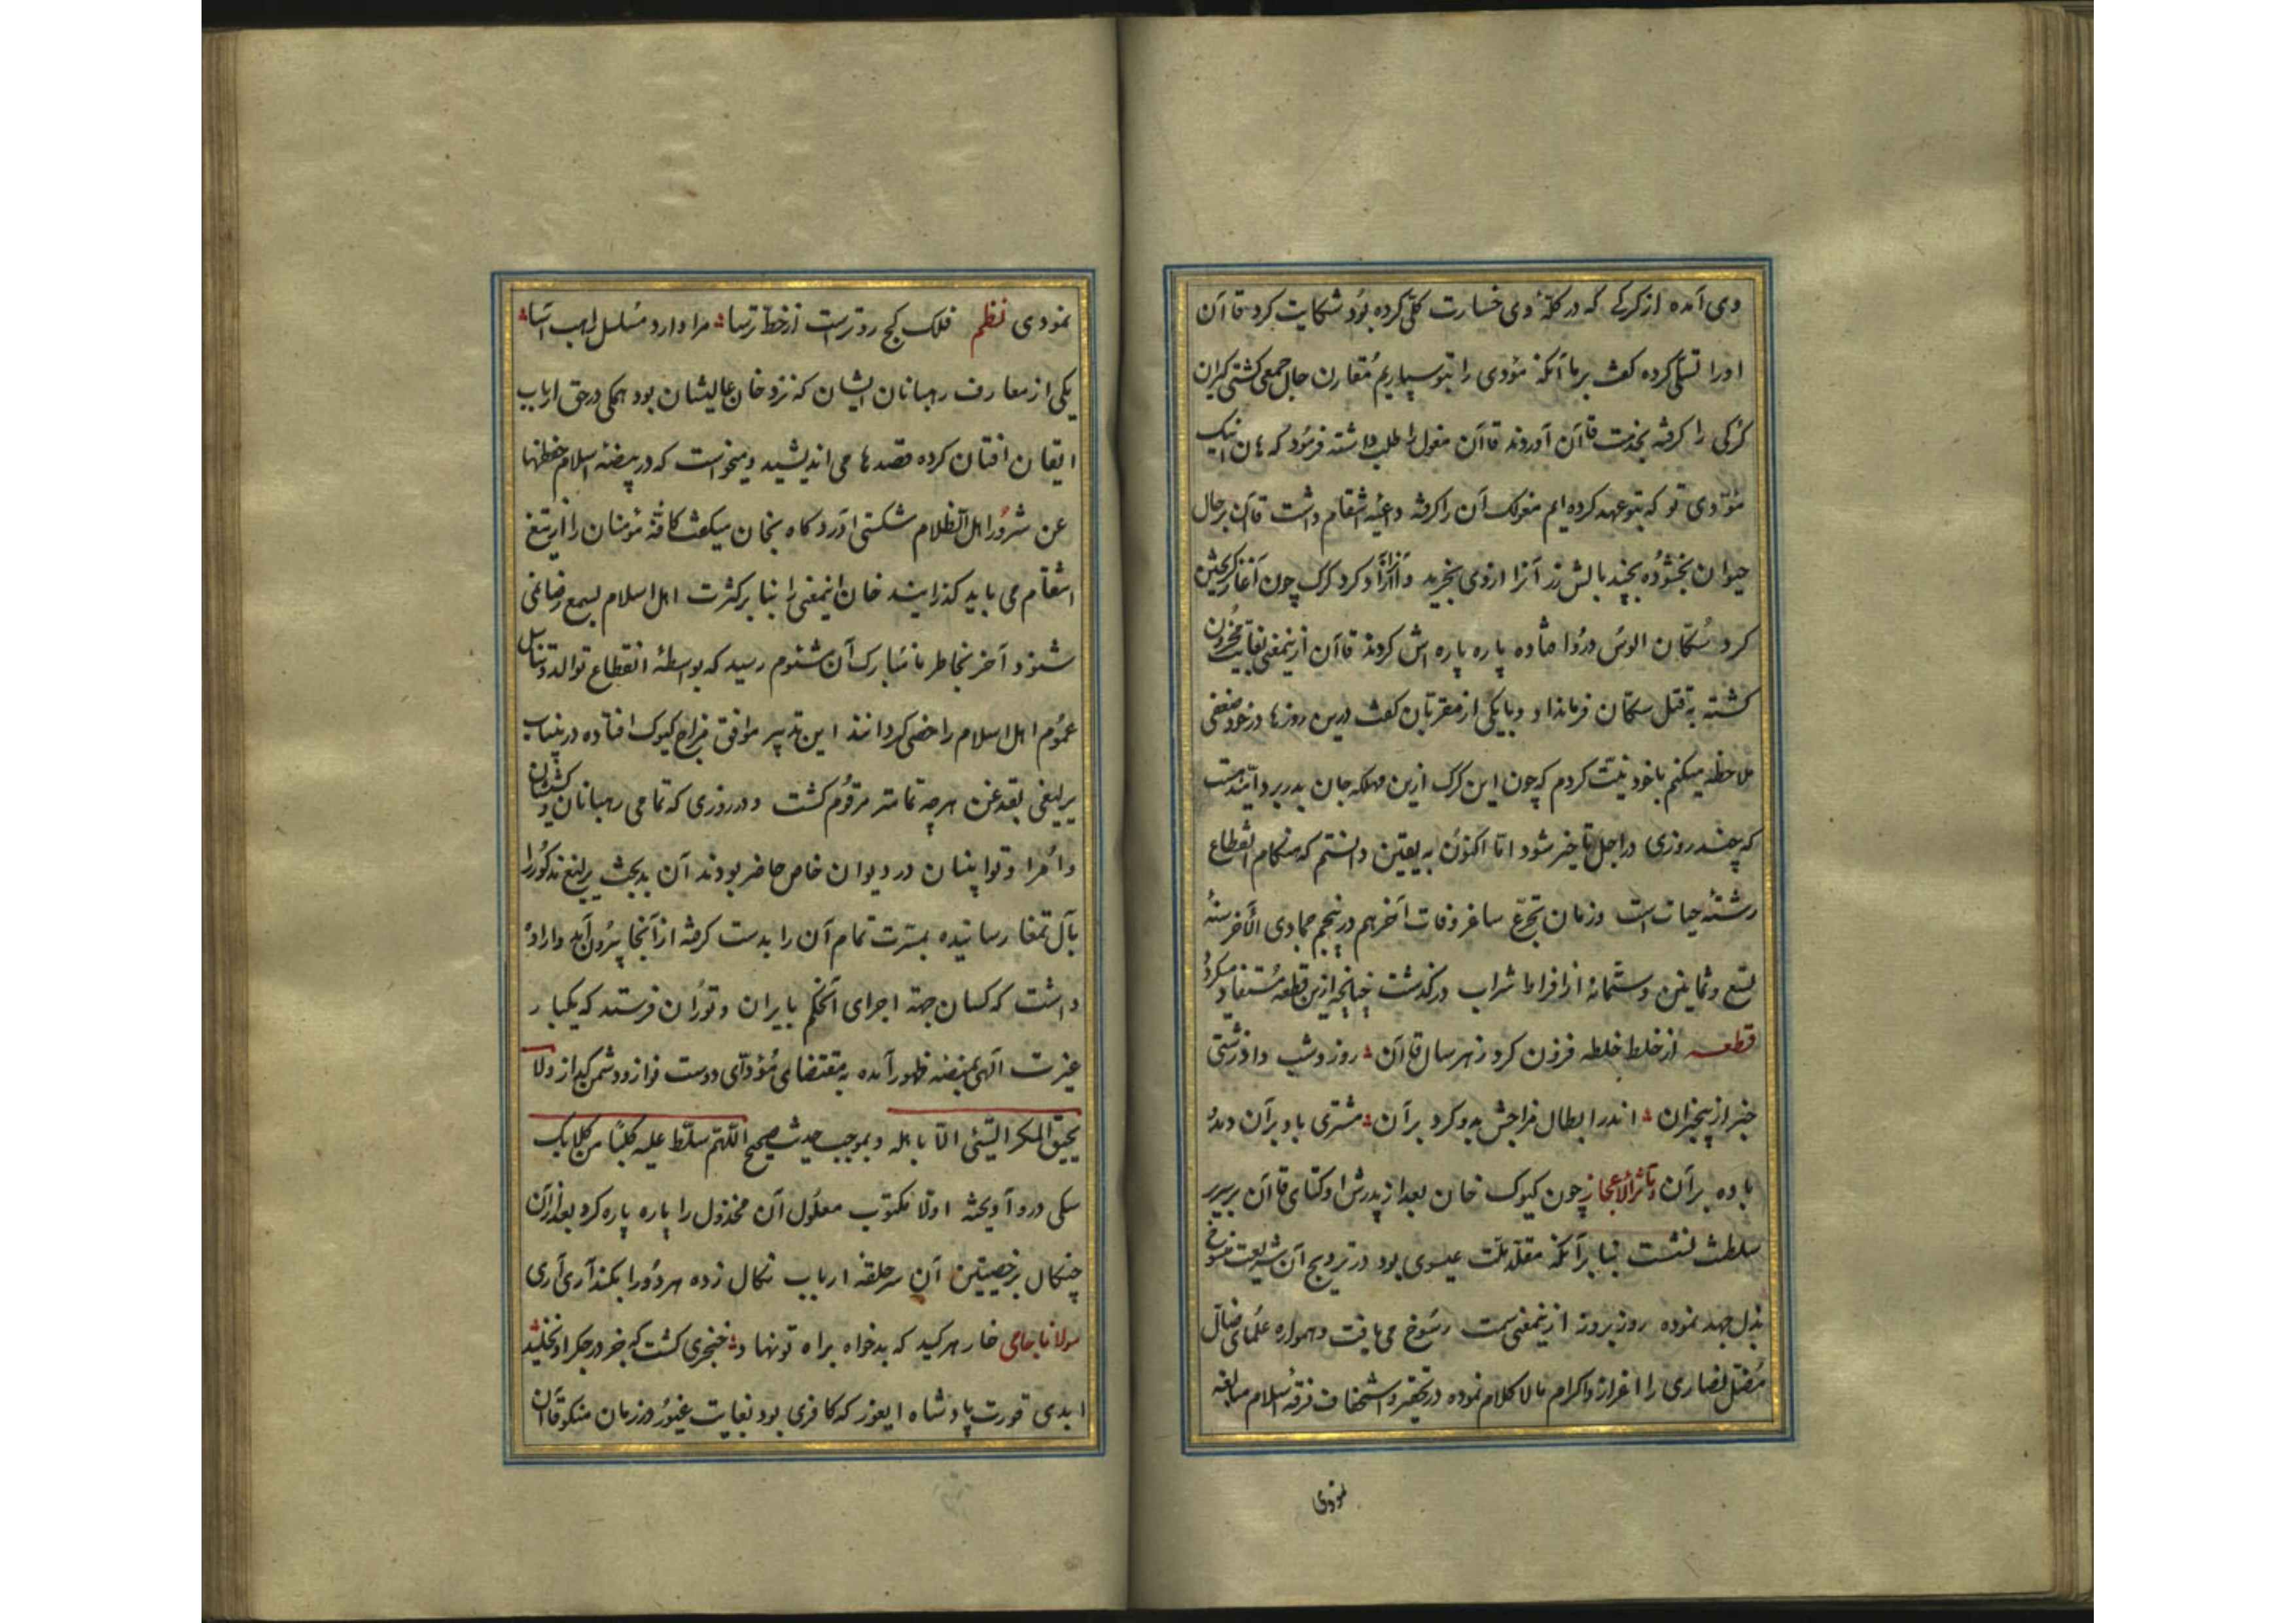 وی آمده از گرگی که در گلهٔ وی خسارت کلی کرده بود شکایت کرد قاآن
اورا تسلی کرده گفت برما آنکه موذی را بتو سپاریم مقارن حال جمعی کشتی گیران
گرگی را گرفته بخدمت قاآن آوردند قاآن مغول را طلب داشته فرمود که هان اینک
موذی تو که بتو عهد کرده ایم مغولک آن را گرفته داعیه انتقام داشت قاآن بر حال
حیوان بخشوده بچند بالش زر آنرا ازوی بخرید و آزاد کرد گرگ چون آغاز گریختن
کرد سکان الوس درو افتاده پاره پاره اش کردند قاآن ازینمعنی بغایت محزون
گشته به قتل سکان فرمانداد و با یکی از مقربان گفت درین روزها در خود ضعفی
ملاحظه میکنم باخود نیت کردم که چون این گرگ ازین مهلکه جان بدر برد امید هست
که چند روزی در اجل تاخیر شود اما اکنون به یقین دانستم که هنگام انقطاع
رشتهٔ حیات است وزمان تجرع ساغر وفات آخر هم در پنجم جمادی الآخر سنهٔ
تسع و ثمانین و ستمائة از افراط شراب درگذشت چنانچه ازین قطعه مستفاد میگردد
قطعه از خلط خلطه فزون کرد زهر سال قاآن روز و شب داد زمستی
خبر از بیخبران اندر ابطال مزاجش بدو کرد بر آن مشتری باد بر آن دهد
باده بر آن و تاثر الاعجاز چون کیوک خان بعد از پدرش اوکتای قاآن بر سریر
سلطنت نشست بنا بر آنکه مقلد ملت عیسوی بود در ترویج آن شریعت منسوخ
بذل جهد نموده روز بروز ازینمعنی سمت رسوخ می یافت و همواره علمای ضال
مضل نصاری را اعزاز و اکرام مالا کلام نموده در تحقیر و استخفاف فرقهٔ اسلام مبالغه
نمودی
نمودی نظم فلک کج روترست از خط ترسا مرا دارد مسلسل راهب آسا
یکی از معارف رهبانان ایشان که نزد خان عالیشان بود همگی در حق ارباب
ایقان افتان کرده قصد ها می اندیشید و میخواست که در بیضهٔ اسلام حفظها
عن شرور اهل الظلام شکستی آرد و گاه بخان میگفت کافهٔ مؤمنان را از تیغ
انتقام می باید گذرانید خان اینمعنی را بنا بر کثرت اهل اسلام بسمع رضا نمی
شنود آخر بخاطر نامبارک آن مشئوم رسید که بواسطهٔ انقطاع توالد و تناسل
عموم اهل اسلام را خصی گردانند این تدبیر موافق مزاج کیوک افتاده درینباب
یرلیغی بقدغن هرچه تمامتر مرقوم گشت و در روزی که تمامی رهبانان و کشیشان
و امرا و نوایینان در دیوان خاص حاضر بودند آن بدبخت یرلیغ مذکور را
بآل تمغا رسانیده بمسرت تمام آن را بدست گرفته از آنجا بیرون آمد و اراده
داشت که کسان جهة اجرای آنحکم بایران و توران فرستد که یکبار
غیرت الهی بمنصه ظهور آمده به مقتضای مؤدای دوست نواز و دشمن گداز و لا
یحیق المکر السیئ الا باهله و بموجب حدیث صحیح اللهم سلط علیه کلبا من کلابک
سگی درو آویخته اولا مکتوب معلول آن مخذول را پاره پاره کرد بعد از آن
چنگال بر خصیتین آن سرحلقه ارباب نکال زده هر دو را بکند آری آری
مولانا جامی خار هر کید که بدخواه براه تو نهاد خنجری گشت که جز در جگر او نخلید
ابدی قورت پادشاه ایغور که کافری بود بغایت غیور در زمان منکو قاآن